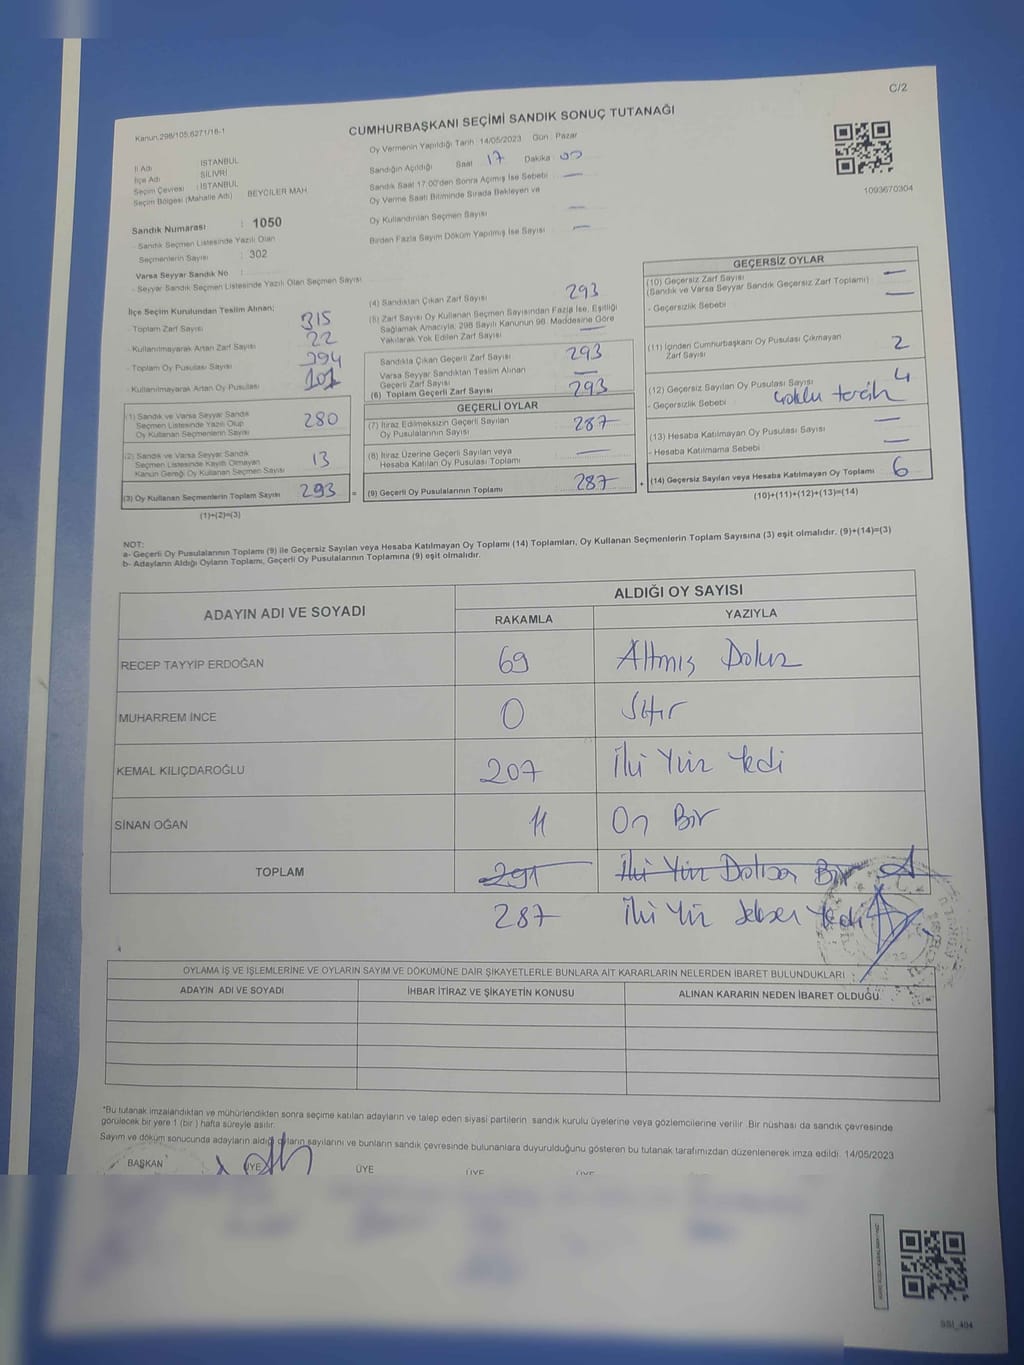 C/2
Kanun.298/105;6271/16-1
CUMHURBAŞKANI SEÇİMİ SANDIK SONUÇ TUTANAĞI
1093670304
İl Adı : İSTANBUL
İlçe Adı : SİLİVRİ
Seçim Çevresi : İSTANBUL
Seçim Bölgesi (Mahalle Adı) BEYCİLER MAH.
Sandık Numarası : 1050
- Sandık Seçmen Listesinde Yazılı Olan
Seçmenlerin Sayısı : 302
Varsa Seyyar Sandık No :
- Seyyar Sandık Seçmen Listesinde Yazılı Olan Seçmen Sayısı
Oy Vermenin Yapıldığı Tarih :14/05/2023 Gün : Pazar
Sandığın Açıldığı Saat 17 Dakika 00
Sandık Saat 17:00'den Sonra Açılmış İse Sebebi —
Oy Verme Saati Bitiminde Sırada Bekleyen ve
Oy Kullandırılan Seçmen Sayısı —
Birden Fazla Sayım Döküm Yapılmış İse Sayısı —
İlçe Seçim Kurulundan Teslim Alınan;
- Toplam Zarf Sayısı 315
- Kullanılmayarak Artan Zarf Sayısı 22
- Toplam Oy Pusulası Sayısı 394
- Kullanılmayarak Artan Oy Pusulası 101
(1) Sandık ve Varsa Seyyar Sandık
Seçmen Listesinde Yazılı Olup
Oy Kullanan Seçmenlerin Sayısı 280
(2) Sandık ve Varsa Seyyar Sandık
Seçmen Listesinde Kayıtlı Olmayan
Kanun Gereği Oy Kullanan Seçmen Sayısı 13
(3) Oy Kullanan Seçmenlerin Toplam Sayısı 293 =
(1)+(2)=(3)
(4) Sandıktan Çıkan Zarf Sayısı 293
(5) Zarf Sayısı Oy Kullanan Seçmen Sayısından Fazla İse, Eşitliği
Sağlamak Amacıyla, 298 Sayılı Kanunun 98. Maddesine Göre
Yakılarak Yok Edilen Zarf Sayısı —
Sandıkta Çıkan Geçerli Zarf Sayısı 293
Varsa Seyyar Sandıktan Teslim Alınan
Geçerli Zarf Sayısı —
(6) Toplam Geçerli Zarf Sayısı 293
GEÇERLİ OYLAR
(7) İtiraz Edilmeksizin Geçerli Sayılan
Oy Pusulalarının Sayısı 287
(8) İtiraz Üzerine Geçerli Sayılan veya
Hesaba Katılan Oy Pusulası Toplamı —
(9) Geçerli Oy Pusulalarının Toplamı 287 +
GEÇERSİZ OYLAR
(10) Geçersiz Zarf Sayısı —
(Sandık ve Varsa Seyyar Sandık Geçersiz Zarf Toplamı)
- Geçersizlik Sebebi —
(11) İçinden Cumhurbaşkanı Oy Pusulası Çıkmayan
Zarf Sayısı 2
(12) Geçersiz Sayılan Oy Pusulası Sayısı 4
- Geçersizlik Sebebi çoklu tercih
(13) Hesaba Katılmayan Oy Pusulası Sayısı —
- Hesaba Katılmama Sebebi —
(14) Geçersiz Sayılan veya Hesaba Katılmayan Oy Toplamı 6
(10)+(11)+(12)+(13)=(14)
NOT:
a- Geçerli Oy Pusulalarının Toplamı (9) ile Geçersiz Sayılan veya Hesaba Katılmayan Oy Toplamı (14) Toplamları, Oy Kullanan Seçmenlerin Toplam Sayısına (3) eşit olmalıdır. (9)+(14)=(3)
b- Adayların Aldığı Oyların Toplamı, Geçerli Oy Pusulalarının Toplamına (9) eşit olmalıdır.
ADAYIN ADI VE SOYADI ALDIĞI OY SAYISI
RAKAMLA YAZIYLA
RECEP TAYYİP ERDOĞAN 69 Altmış Dokuz
MUHARREM İNCE 0 Sıfır
KEMAL KILIÇDAROĞLU 207 İki Yüz Yedi
SİNAN OĞAN 11 On Bir
TOPLAM 291 İki Yüz Doksan Bir
287 İki Yüz Seksen Yedi
OYLAMA İŞ VE İŞLEMLERİNE VE OYLARIN SAYIM VE DÖKÜMÜNE DAİR ŞİKAYETLERLE BUNLARA AİT KARARLARIN NELERDEN İBARET BULUNDUKLARI :
ADAYIN ADI VE SOYADI İHBAR İTİRAZ VE ŞİKAYETİN KONUSU ALINAN KARARIN NEDEN İBARET OLDUĞU
*Bu tutanak imzalandıktan ve mühürlendikten sonra seçime katılan adayların ve talep eden siyasi partilerin sandık kurulu üyelerine veya gözlemcilerine verilir. Bir nüshası da sandık çevresinde
görülecek bir yere 1 (bir ) hafta süreyle asılır.
Sayım ve döküm sonucunda adayların aldığı oyların sayılarını ve bunların sandık çevresinde bulunanlara duyurulduğunu gösteren bu tutanak tarafımızdan düzenlenerek imza edildi. 14/05/2023
BAŞKAN ÜYE ÜYE ÜYE ÜYE
SSI_404